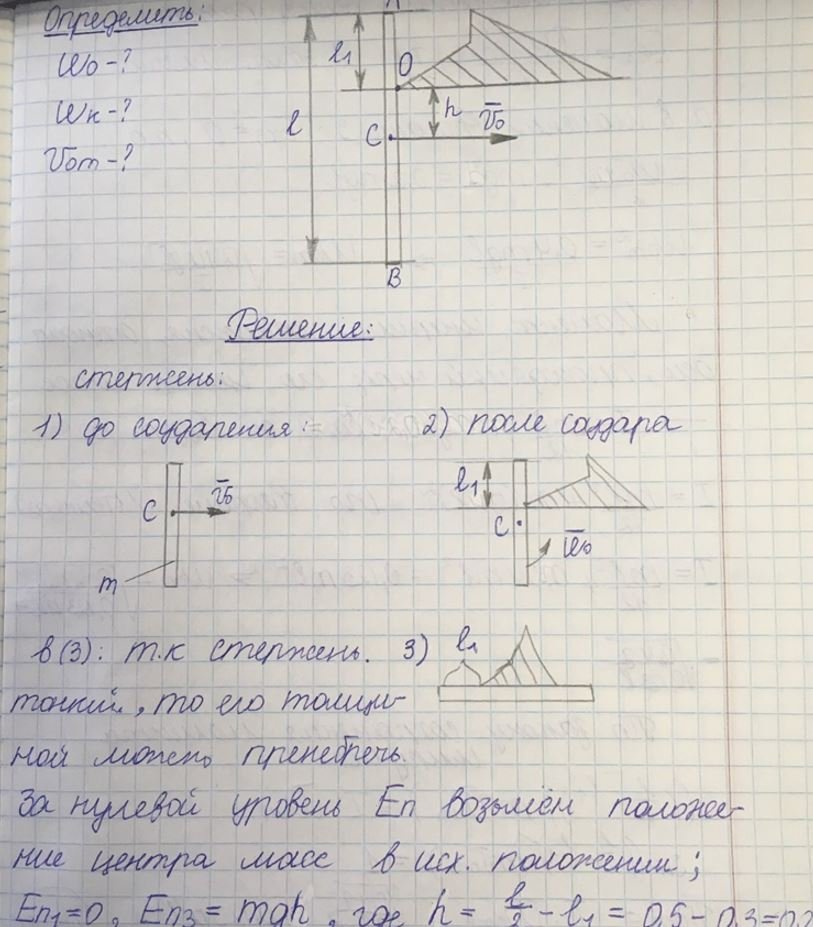 Определить:
ω₀ - ?
ωк - ?
V₀т - ?
A
l₁
O
l
h
C
V̄₀
B
Решение:
стержень:
1) до соударения:
2) после соудара
C
V̄₀
m
l₁
C
ω̄₀
в (3): т.к стержень.
3)
l₁
тонкий, то его толщи-
ной можно пренебречь.
За нулевой уровень Eп возьмём положе-
ние центра масс в исх. положении;
Eп₁=0, Eп₃ = mgh, где h = l/2 - l₁ = 0,5 - 0,3 = 0,2